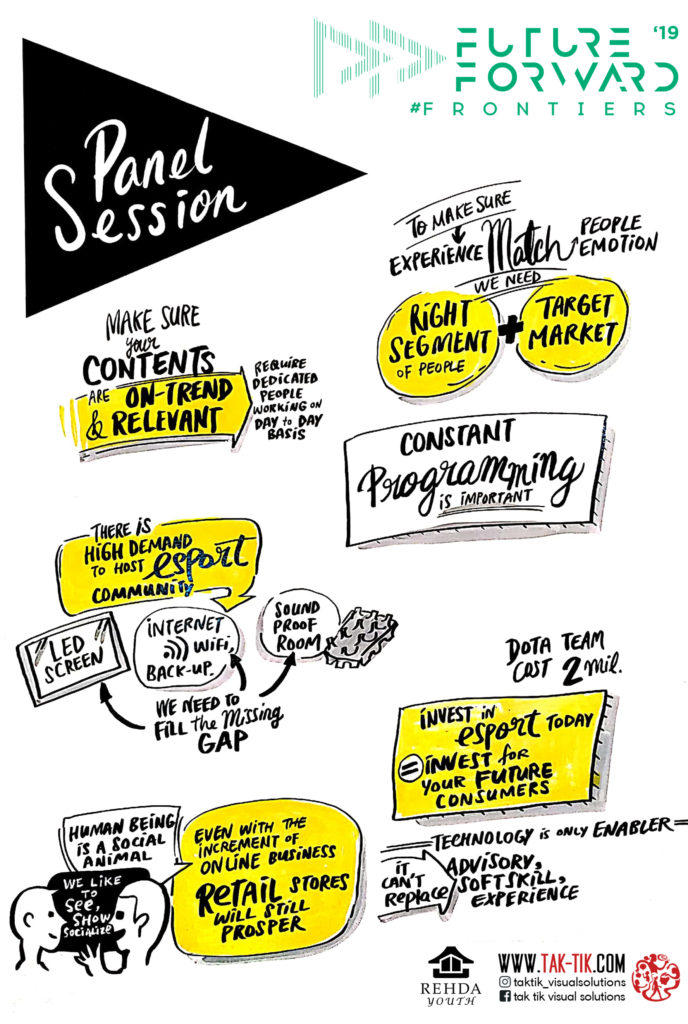 FUTURE '19
FORWARD
#FRONTIERS
Panel
Session
TO MAKE SURE
EXPERIENCE Match PEOPLE
EMOTION
WE NEED
RIGHT
SEGMENT
OF PEOPLE
+
TARGET
MARKET
MAKE SURE
your
CONTENTS
ARE ON-TREND
& RELEVANT
REQUIRE
DEDICATED
PEOPLE
WORKING ON
DAY to DAY
BASIS
CONSTANT
Programming
IS IMPORTANT
THERE IS
HIGH DEMAND
TO HOST esport
COMMUNITY
LED
SCREEN
INTERNET
WiFi,
BACK-UP.
SOUND
PROOF
ROOM
WE NEED TO
FILL the Missing
GAP
DOTA TEAM
COST 2 mil.
INVEST IN
esport TODAY
= INVEST for
YOUR FUTURE
CONSUMERS
HUMAN BEING
IS A SOCIAL
ANIMAL
WE LIKE
TO
SEE,
SHOW
Socialize
EVEN WITH THE
INCREMENT OF
ONLINE BUSINESS
RETAIL STORES
WILL STILL
PROSPER
TECHNOLOGY IS ONLY ENABLER
IT
CAN'T
Replace
ADVISORY,
SOFTSKILL,
EXPERIENCE
REHDA
YOUTH
WWW.TAK-TIK.COM
taktik_visualsolutions
tak tik visual solutions